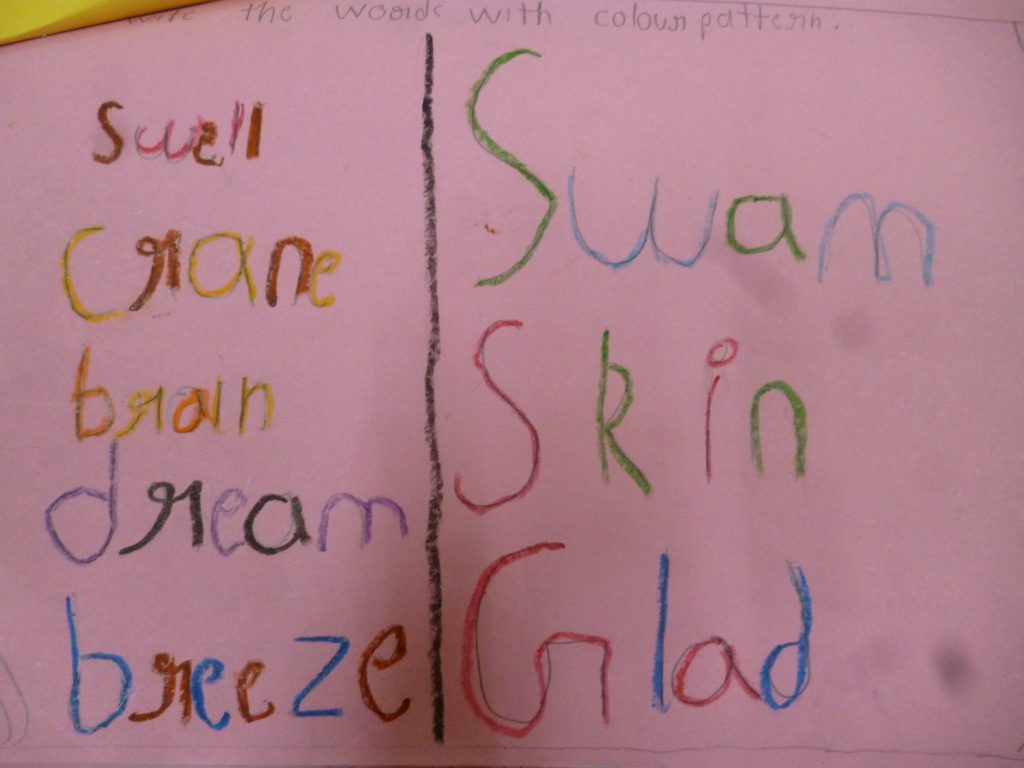 the words with colour pattern.
swell
crane
brain
dream
breeze
Swam
Skin
Glad